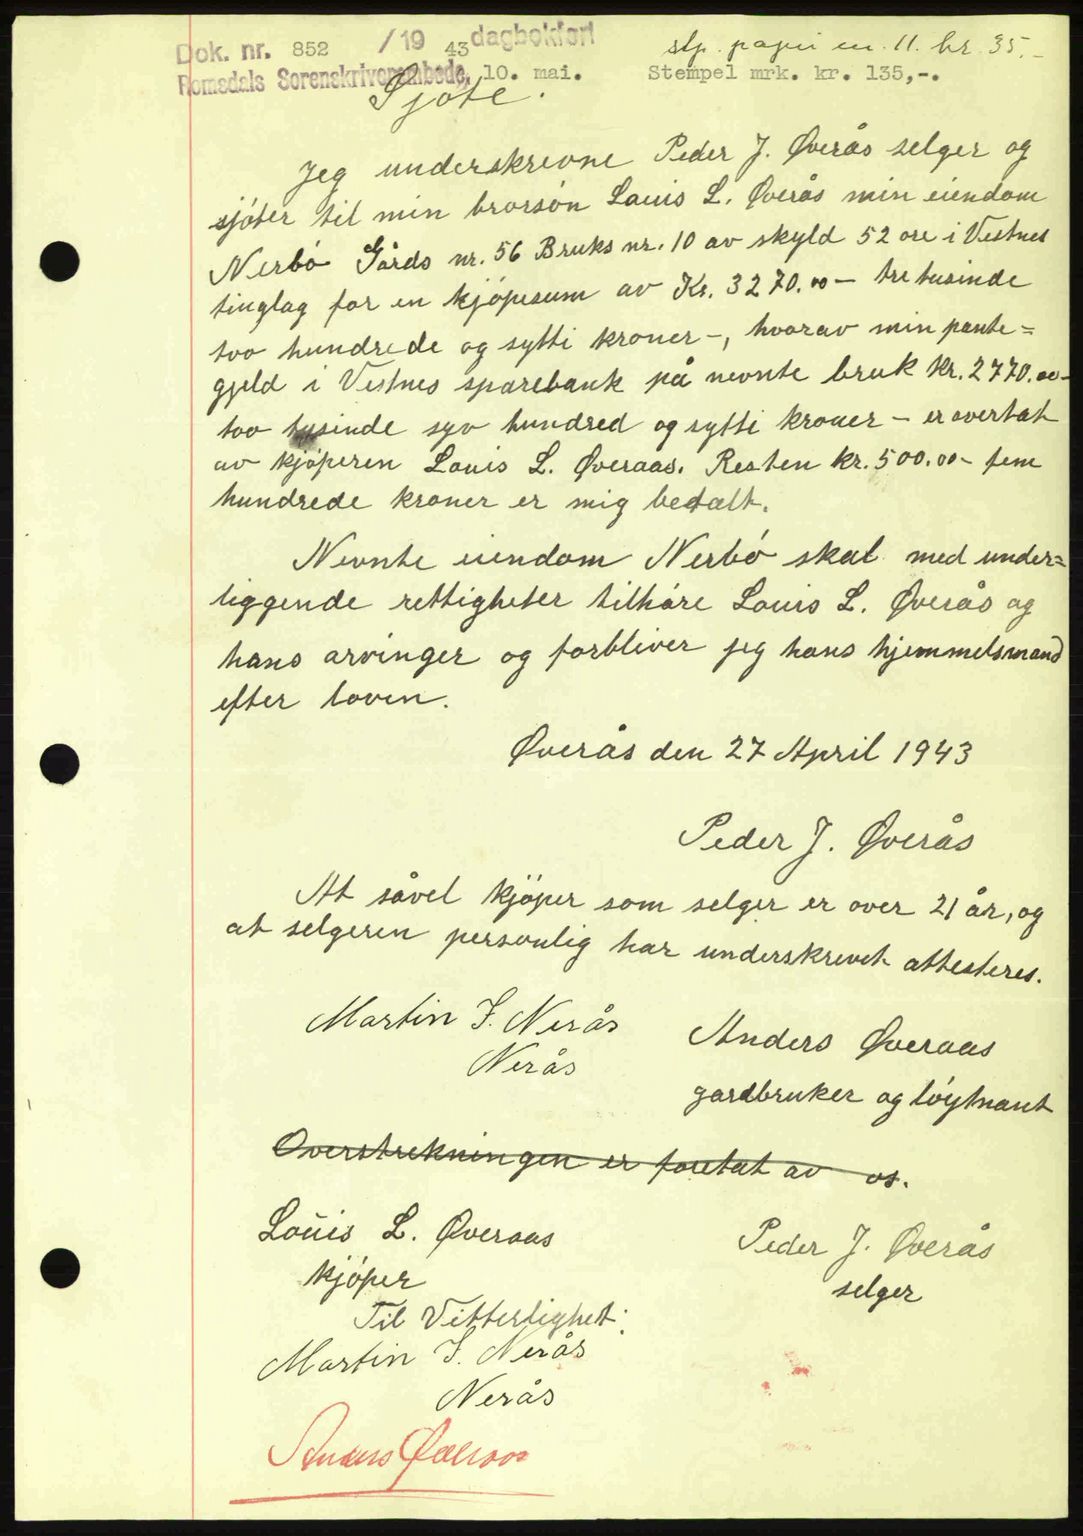 Dok. nr. 852 /19 43 dagbokført
stp. papir en. 11. kr. 35,-
Romsdals Sorenskriverembede, 10. mai. Stempel mrk. kr. 135,-.
Sjøte.
Jeg underskrevne Peder J. Øverås selger og
sjøter til min brorsøn Louis L. Øverås min eiendom
Nerbø Gårds nr. 56 Bruks nr. 10 av skyld 52 øre i Vestnes
tinglag for en kjøpesum av Kr. 3270.00 – tre tusinde
too hundrede og sytti kroner –, hvorav min pante=
gjeld i Vestnes sparebank på nevnte bruk kr. 2770.00–
too tusinde syv hundred og sytti kroner – er overtat
av kjøperen Louis L. Øveraas. Resten kr. 500.00 – fem
hundrede kroner er mig betalt.
Nevnte eiendom Nerbø skal med under=
liggende rettigheter tilhøre Louis L. Øverås og
hans arvinger og forbliver jeg hans hjemmelsmand
efter loven.
Øverås den 27 April 1943
Peder J. Øverås
At såvel kjøper som selger er over 21 år, og
at selgeren personlig har underskrevet attesteres.
Martin I. Nerås
Nerås
Anders Øveraas
gardbruker og løytnant
Overstrekningen er foretat av os.
Louis L. Øveraas
kjøper
Peder J. Øverås
selger
Til Vitterlighet:
Martin I. Nerås
Nerås
Anders Øveraas